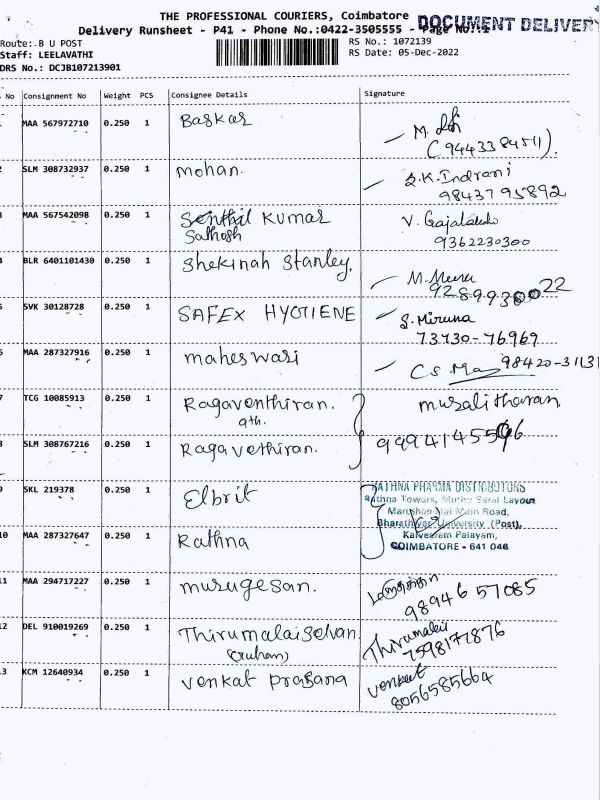 THE PROFESSIONAL COURIERS, Coimbatore
DOCUMENT DELIVERY
Delivery Runsheet - P41 - Phone No.:0422-3505555 - Page No.:1
Route: B U POST
RS No.: 1072139
Staff: LEELAVATHI
RS Date: 05-Dec-2022
DRS No.: DCJB107213901
No Consignment No Weight PCS Consignee Details Signature
MAA 567972710 0.250 1 Baskar M.
(9443384511).
2 SLM 308732937 0.250 1 mohan. S.K. Indrani
98437 95892
3 MAA 567542098 0.250 1 Senthil Kumar V. Gajalakshi
Sathosh 9362230300
4 BLR 6401101430 0.250 1 Shekinah Stanley. M. Meena
9289930022
5 SVK 30128728 0.250 1 SAFEX HYGIENE S. Miruna
73730-76969
6 MAA 287327916 0.250 1 maheswari C S 98420-31131
7 TCG 10085913 0.250 1 Ragaventhiran. muralitharan
9th. 9994145596
8 SLM 308767216 0.250 1 Ragavethiran.
9 SKL 219378 0.250 1 Elbrit RATHNA PHARMA DISTRIBUTORS
Rathna Towers, Muthu Saral Layout
Marudhamalai Main Road,
Bharathiyar University (Post),
10 MAA 287327647 0.250 1 Rathna Kalveeram Palayam,
COIMBATORE - 641 046
11 MAA 294717227 0.250 1 murugesan. 98946 57085
12 DEL 910019269 0.250 1 Thirumalaiselvan Thirumalai
7598177876
13 KCM 12640934 0.250 1 Venkat prasana Venkat
8056585664